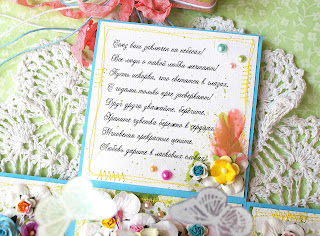 Союз ваш заключен на небесах!
Все люди о такой любви мечтают!
Пусть искорки, что светятся в глазах,
С годами только ярче засверкают!
Друг друга уважайте, берегите,
Храните чувства бережно в сердцах,
Мгновения прекрасные цените,
Любовь дарите в ласковых словах!